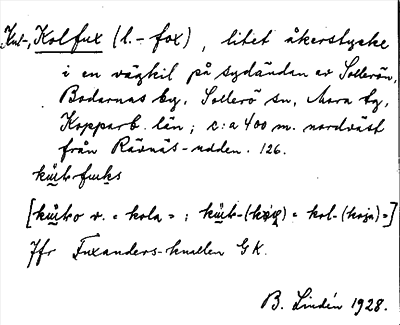 Kut-, Kolfux (l. - fox), litet åkerstycke
i en vägkil på sydändan av Sollerön,
Bodarnas by, Sollerö sn, Mora tg,
Kopparb. län; c:a 400 m. nordväst
från Rävnäs-udden. 126.
ku̯t-fuks
[kuto v. = kola = ; kut- = kol- (koja) =]
Jfr Fuxanders-knallen GK.
B. Lindén 1928.